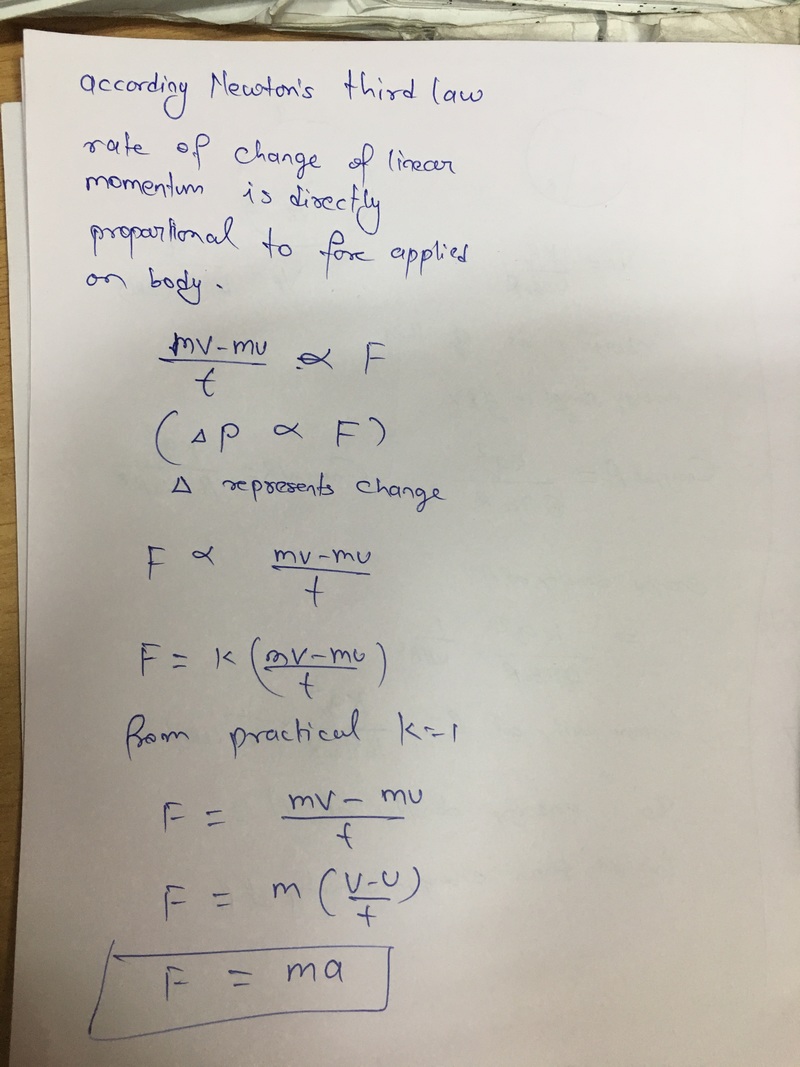 according Newton's third law
rate of change of linear
momentum is directly
proportional to force applied
on body.
mv-mu/t ∝ F
(ΔP ∝ F)
Δ represents change
F ∝ mv-mu/t
F = K (mv-mu/t)
from practical K=1
F = mv - mu/t
F = m (v-u/t)
F = ma